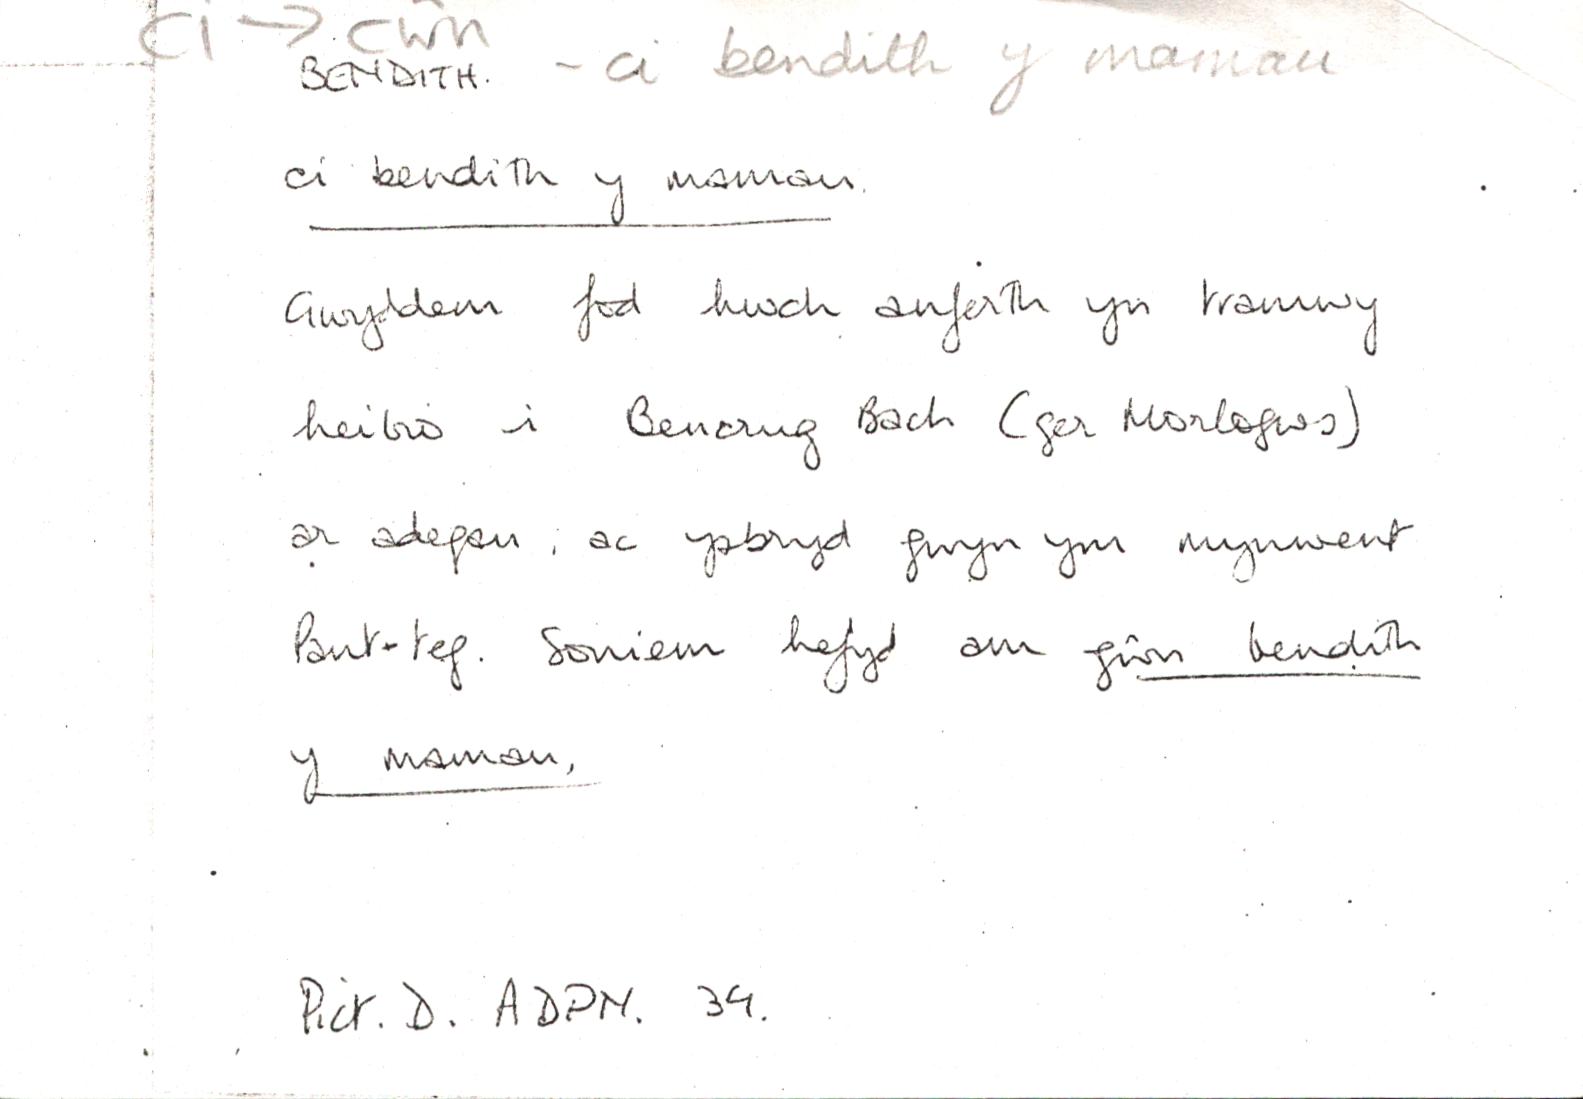 ci → cŵn
BENDITH. - ci bendith y mamau
ci bendith y mamau.
Gwyddem fod hwch anferth yn tramwy
heibio i Bencrug Bach (ger Morlogws)
ar adegau, ac ysbryd gwyn ym mynwent
Pant-teg. Soniem hefyd am gŵn bendith
y mamau,
Pict. D. ADPM. 34.